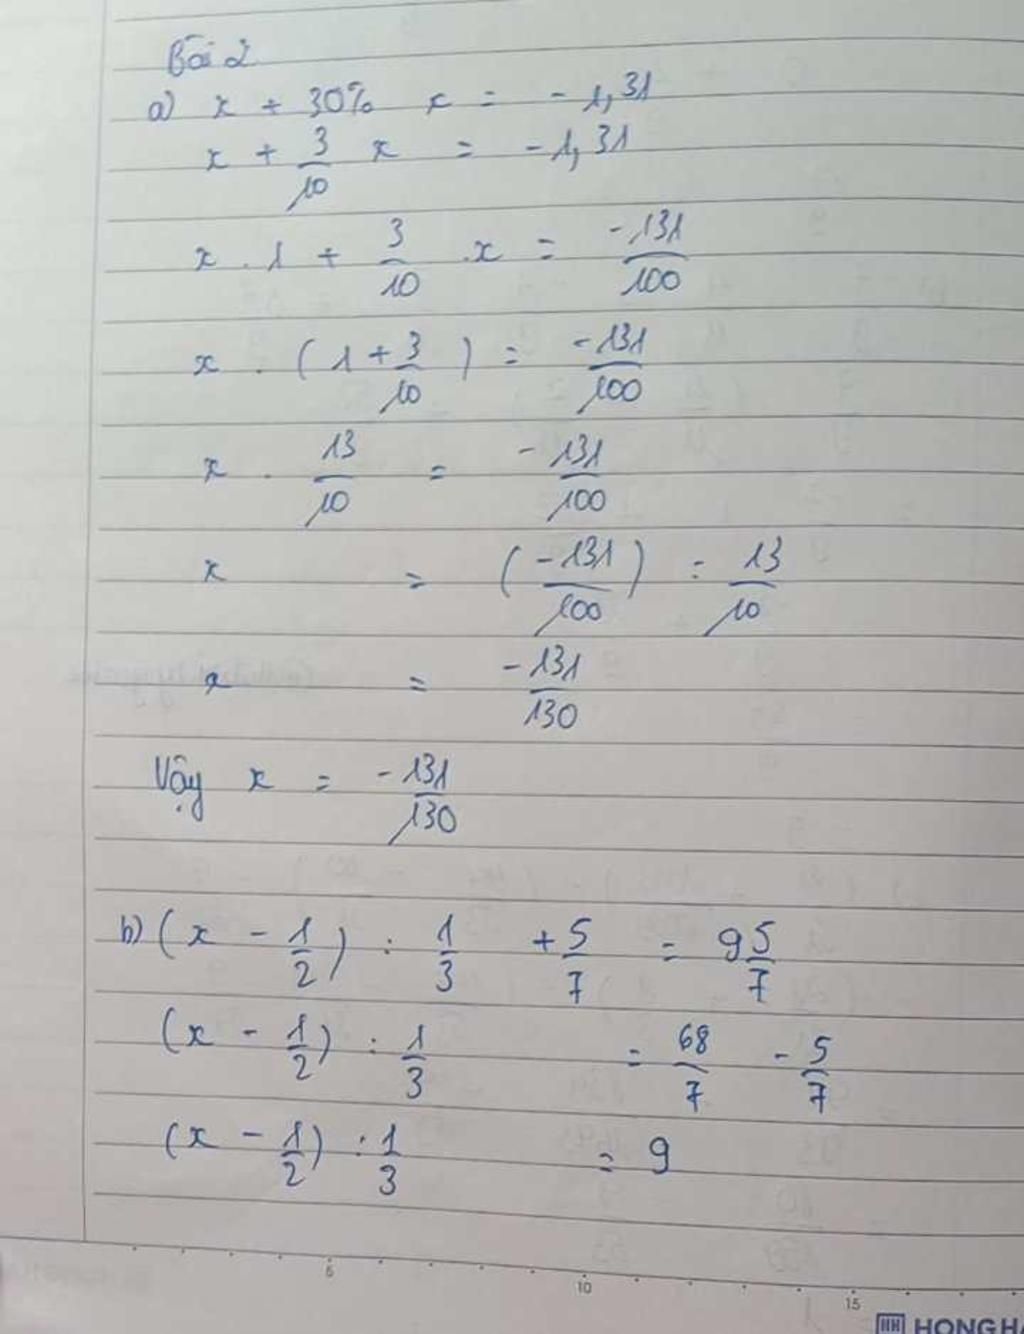 Bài 2
a) x + 30% x = -1,31
x + 3/10 x = -1,31
x . 1 + 3/10 . x = -131/100
x . (1 + 3/10) = -131/100
x . 13/10 = -131/100
x = (-131/100) : 13/10
x = -131/130
Vậy x = -131/130
b) (x - 1/2) : 1/3 + 5/7 = 9 5/7
(x - 1/2) : 1/3 = 68/7 - 5/7
(x - 1/2) : 1/3 = 9
5 10 15
HH HONG H